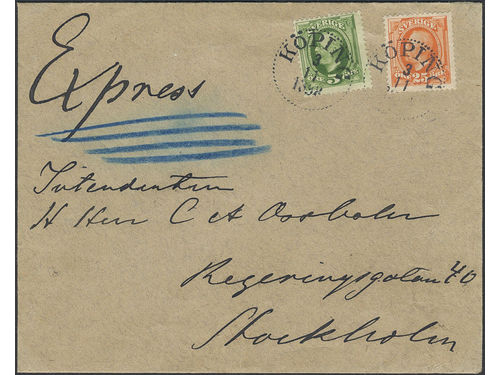 SVERIGE
SVERIGE
KÖPING
KÖPING
Express
Intendenten
H Herr C A Ossbahr
Regeringsgatan 40
Stockholm